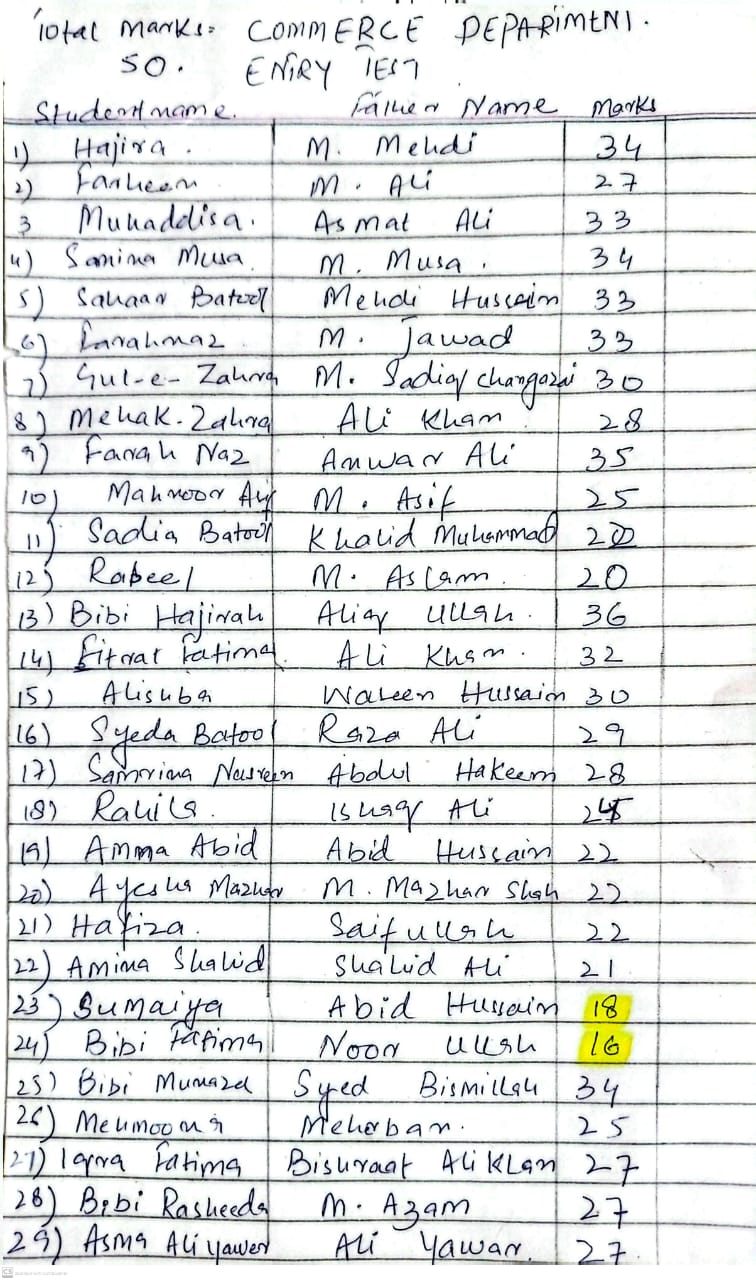 Total Marks: COMMERCE DEPARTMENT.
50. ENTRY TEST
Student name. Father Name Marks
1) Hajira. M. Mehdi 34
2) Farheen M. Ali 27
3 Muhaddisa. Asmat Ali 33
4) Samina Musa M. Musa. 34
5) Sahaar Batool Mehdi Hussain 33
6) Farahnaz M. Jawad 33
7) Gul-e-Zahra M. Sadiq Changazai 30
8) Mehak. Zahra Ali Khan 28
9) Farah Naz Anwar Ali 35
10) Mahnoor M. Asif 25
11) Sadia Batool Khalid Muhammad
12) Rabeel M. Aslam. 20
13) Bibi Hajirah Aliaq Ullah. 36
14) Fitrat Fatima. Ali Khan. 32
15) Alishba Hussain 30
16) Syeda Batool Raza Ali 29
17) Samrina Nasreen Abdul Hakeem 28
18) Rahila. Ishaq Ali
19) Amma Abid Abid Hussain 22
20) Ayesha Mazhar M. Mazhar Shah 22
21) Hafiza. Saifullah 22
22) Amina Shahid Shahid Ali 21
23) Sumaiya Abid Hussain 18
24) Bibi Fatima Noor Ullah 16
25) Bibi Syed Bismillah 34
26) Mehmoona Meherban. 25
27) Iqra Fatima Bisharaat Ali Khan 27
28) Bibi Rasheeda M. Azam 27
29) Asma Ali yawer Ali Yawar. 27